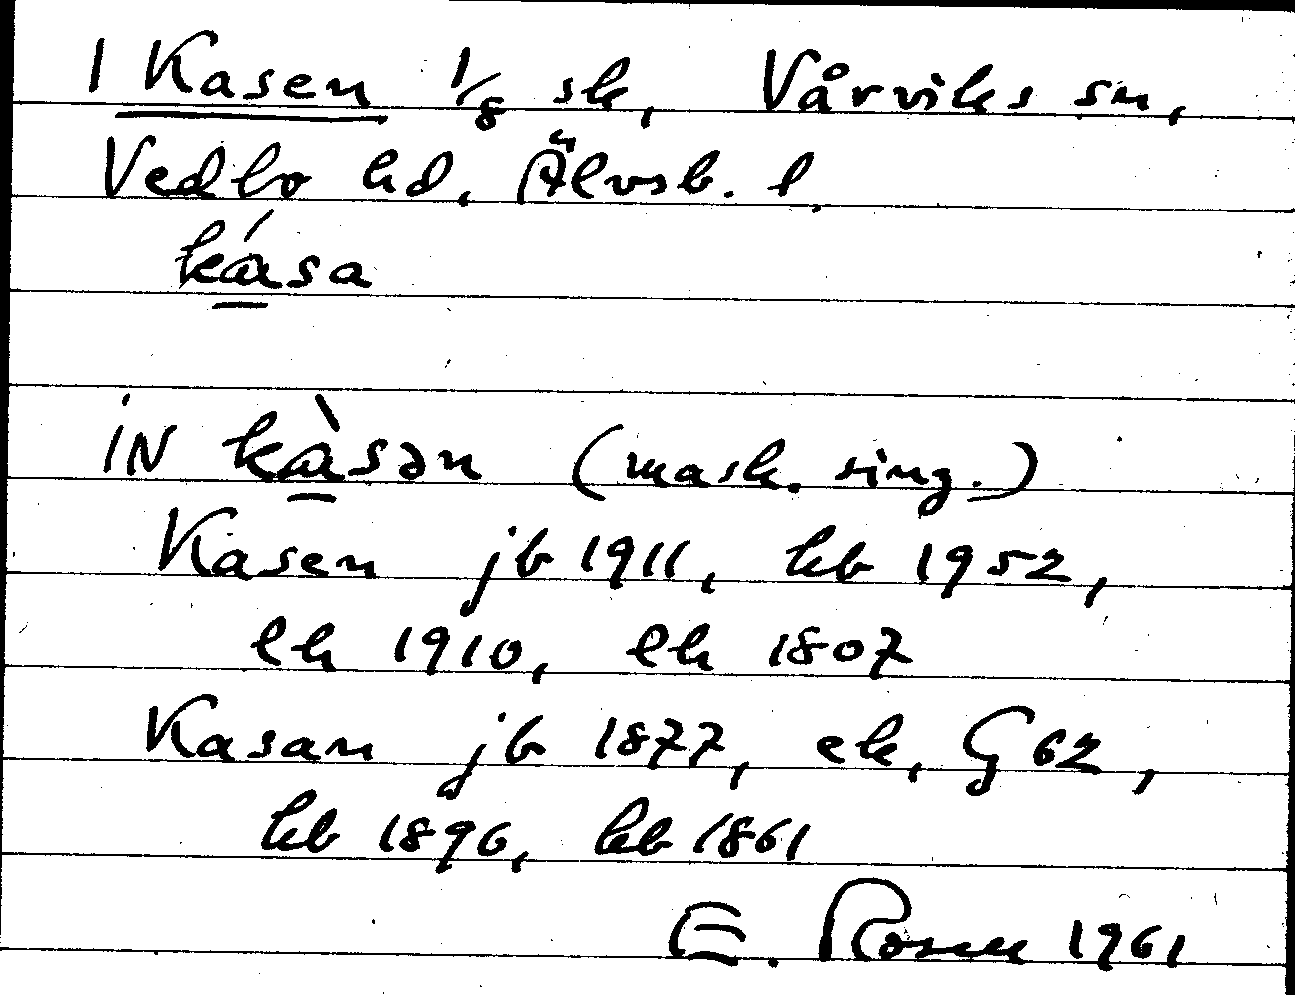 1 Kasen 1/8 sk, Vårviks sn,
Vedbo hd. Älvsb. l.
ká̱sa
iN kà̱sən (mask. sing.)
Kasen jb 1911, kb 1952,
lk 1910, lk 1807
Kasan jb 1877, ek, G 62,
kb 1896, kb 1861
E. Rosen 1961